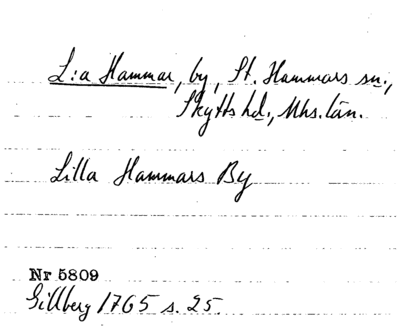 L:a Hammar, by, St. Hammars sn.,
Skytts hd., Mhs. län.
Lilla Hammars By
Nr 5809
Gillberg 1765 s. 25.